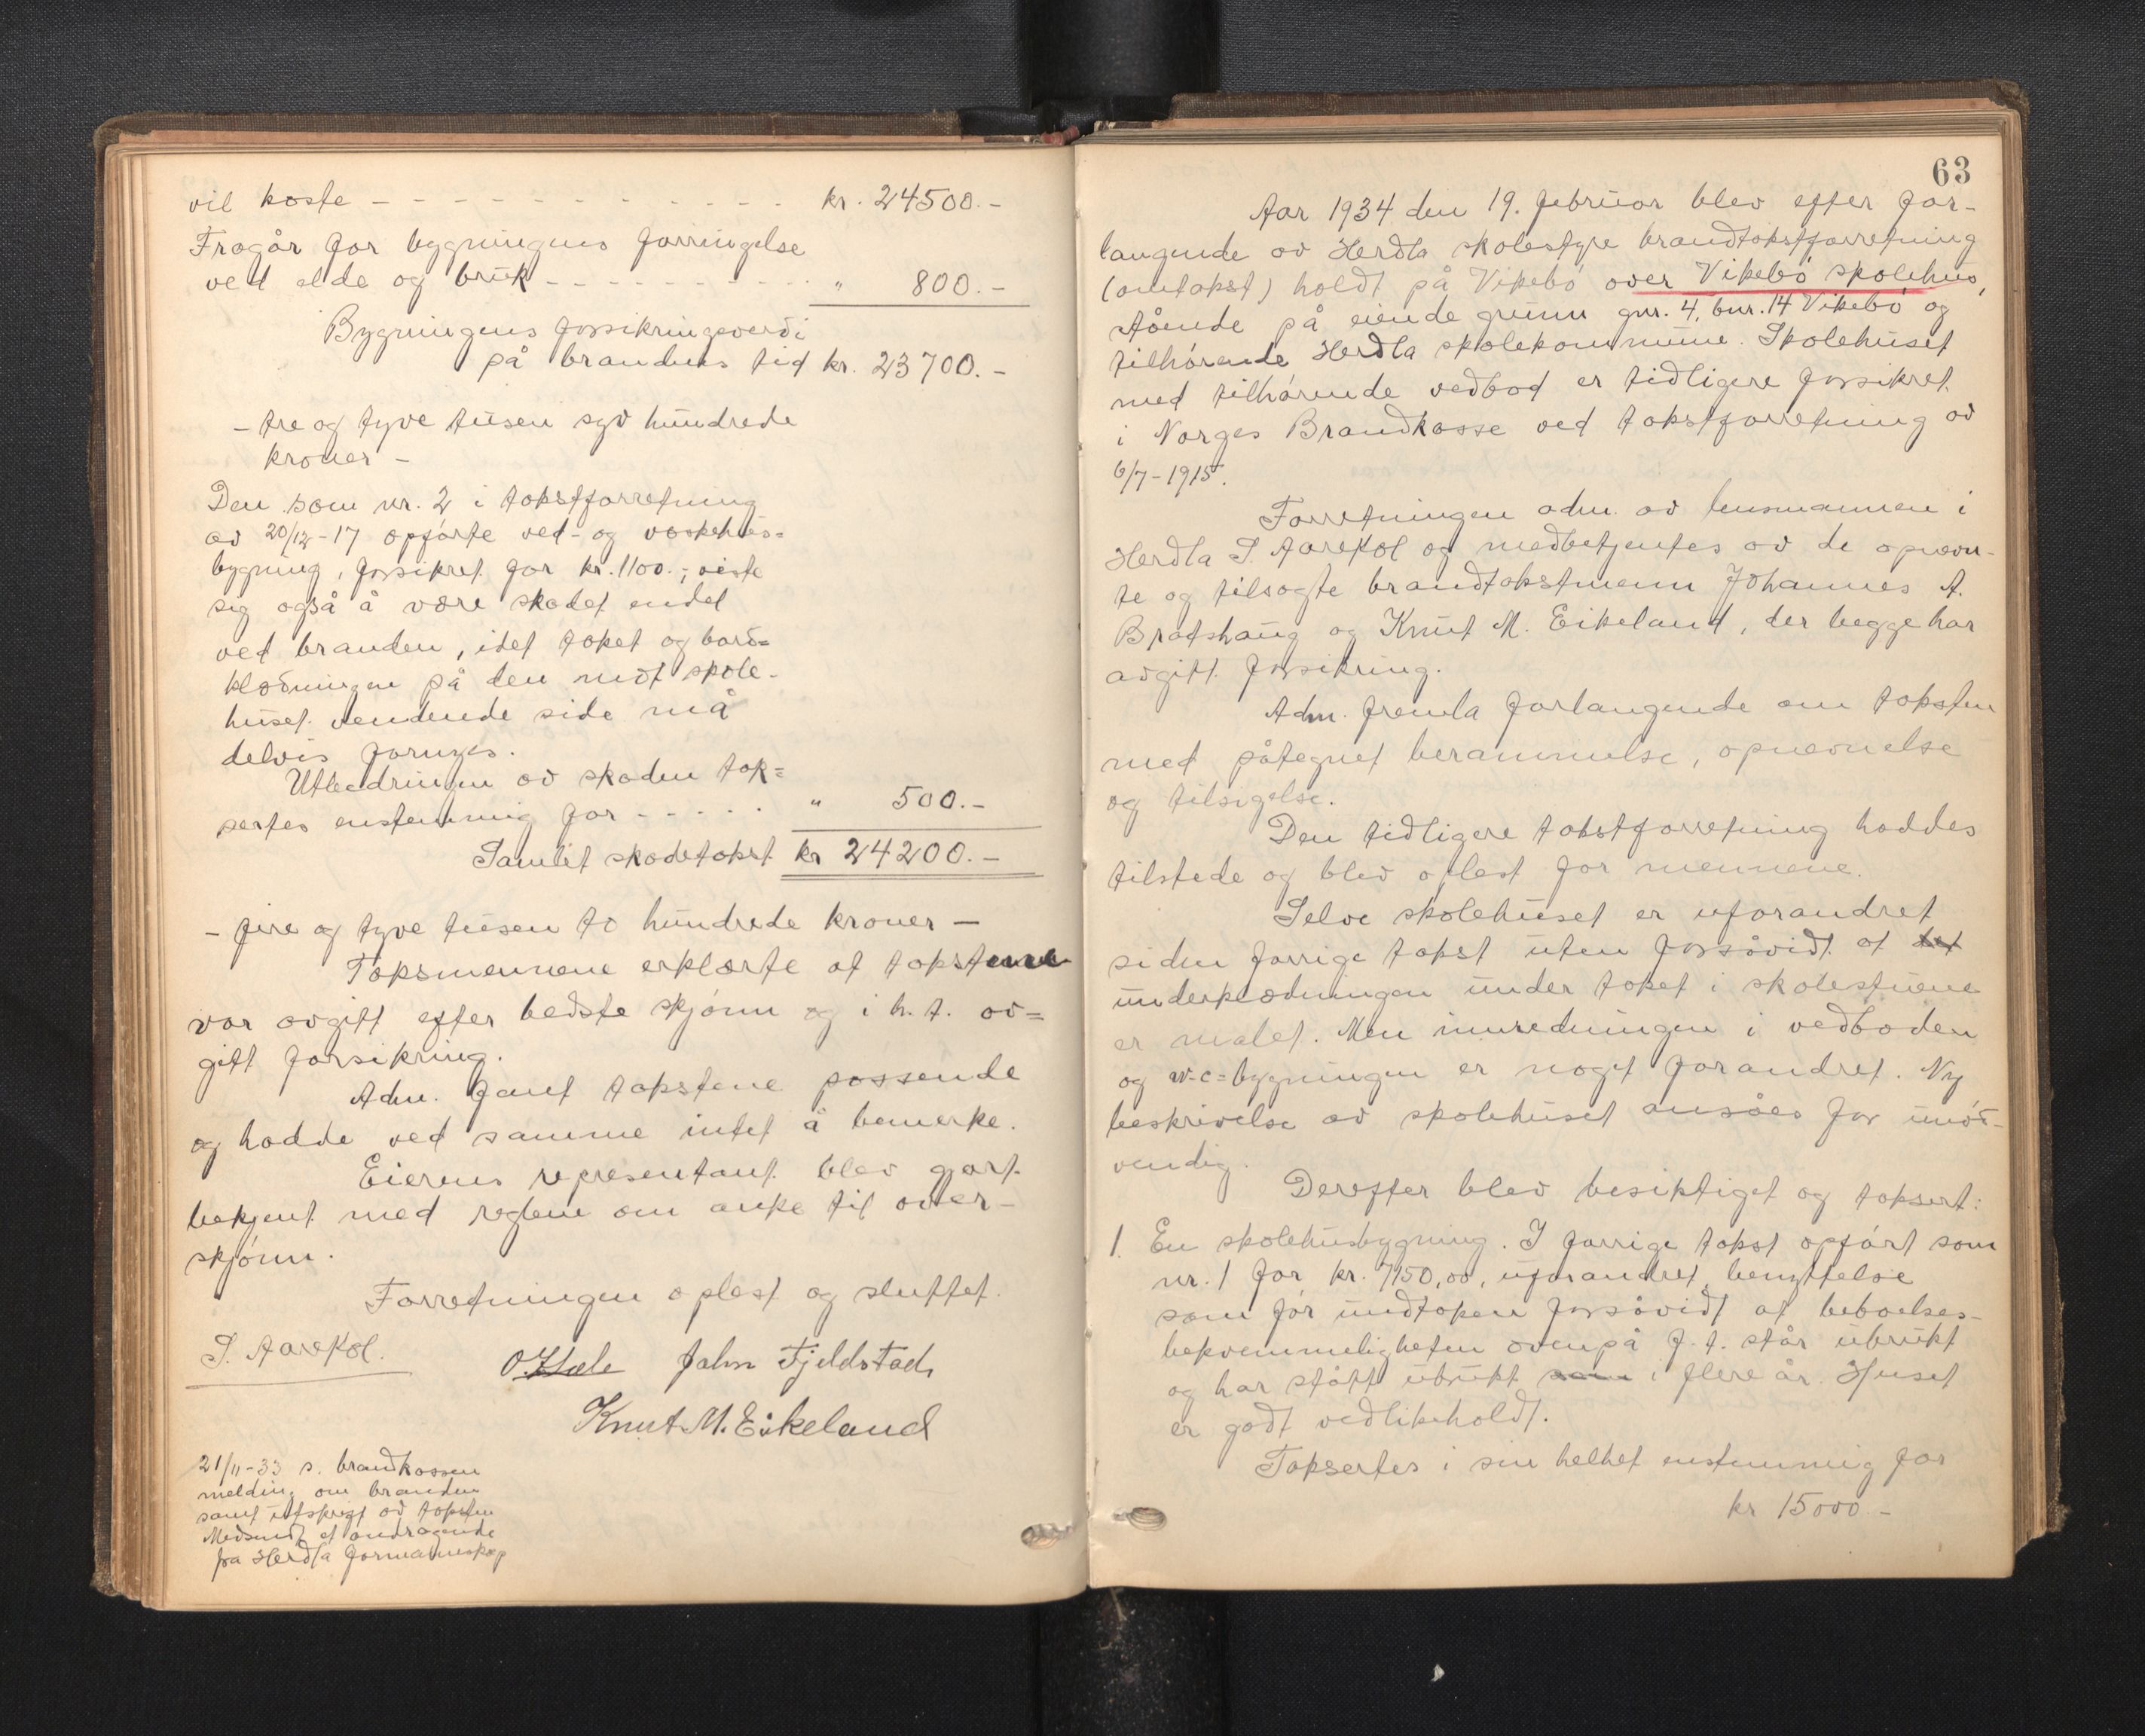 vil koste - - - - - - - - - - - - kr. 24500.-
Fragår for bygningens forringelse
ved elde og bruk - - - - - - - - - - - " 800.-
Bygningens forsikringsverdi
på brandens tid kr. 23700.-
- tre og tyve tusen syv hundrede
kroner -
Den som nr. 2 i takstforretning
av 20/12-17 opførte ved- og vaskehus=
bygning, forsikret for kr. 1100.-, viste
sig også å være skadet endel
ved branden, idet taket og bord=
klædningen på den mot skole-
huset vendende side må
delvis fornyes.
Utbedringen av skaden tak=
sertes enstemmig for - - - - . " 500.-
Samlet skadetakst kr 24200.-
- fire og tyve tusen to hundrede kroner -
Taksmennene erklærte at takstene
var avgitt efter bedste skjønn og i h. t. av=
gitt forsikring.
Adm. fant takstene passende
og hadde ved samme intet å bemerke.
Eierens representant blev gjort
bekjent med reglene om anke til over-
skjønn.
Forretningen oplest og sluttet.
S. Aarekol.
John Fjeldstad
Knut M. Eikeland
21/11-33 s. brandkassen
melding om branden
samt utskrift av taksten
Medsendt et andragende
fra Herdla formannskap
63
Aar 1934 den 19. februar blev efter for-
langende av Herdla skolestyre brandtakstforretning
(omtakst) holdt på Vikebø over Vikebø skolehus,
stående på eiende grunn gnr. 4, bnr. 14 Vikebø og
tilhørende Herdla skolekommune. Skolehuset
med tilhørende vedbod er tidligere forsikret
i Norges Brandkasse ved takstforretning av
6/7-1915.
Forretningen adm. av lensmannen i
Herdla S. Aarekol og medbetjentes av de opnevn-
te og tilsagte brandtakstmenn Johannes A.
Bratshaug og Knut M. Eikeland, der begge har
avgitt forsikring.
Adm. fremla forlangende om taksten
med påtegnet berammelse, opnevnelse
og tilsigelse.
Den tidligere takstforretning haddes
tilstede og blev oplest for mennene.
Selve skolehuset er uforandret
siden forrige takst uten forsåvidt at det
underklædningen under taket i skolestuene
er malet. Men innredningen i vedboden
og w-c=bygningen er noget forandret. Ny
beskrivelse av skolehuset ansåes for unød-
vendig.
Derefter blev besiktiget og taksert:
1. En skolehusbygning. I forrige takst opført som
nr. 1 for kr. 7150,00, uforandret, benyttelse
som før undtaken forsåvidt at beboelses-
bekvemmeligheten ovenpå f. t. står ubrukt
og har stått ubrukt i flere år. Huset
er godt vedlikeholdt.
Taksertes i sin helhet enstemmig for
kr 15000.-